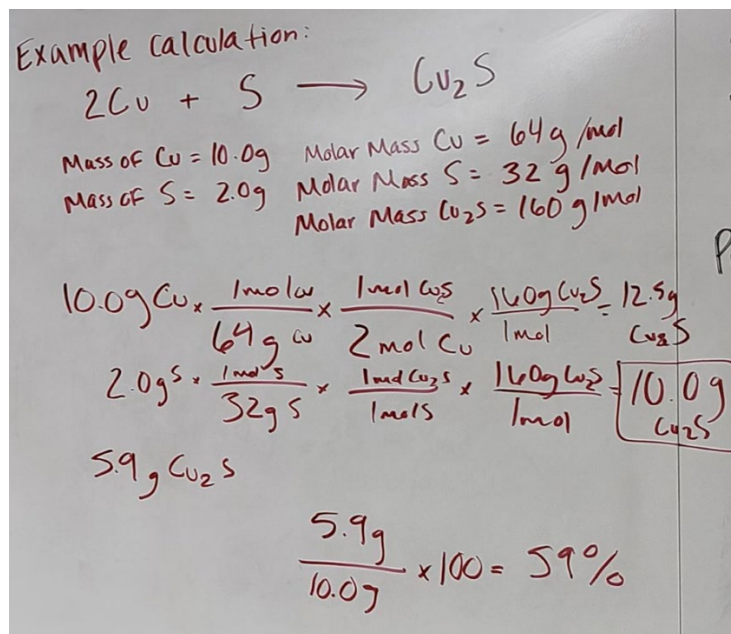 Example Calculation:
2Cu + S → Cu₂S
Mass of Cu = 10.0g Molar Mass Cu = 64g/mol
Mass of S = 2.0g Molar Mass S = 32 g/mol
Molar Mass Cu₂S = 160 g/mol
10.0g Cu × 1mol Cu / 64g Cu × 1mol Cu₂S / 2 mol Cu × 160g Cu₂S / 1mol = 12.5g Cu₂S
2.0g S × 1mol S / 32g S × 1mol Cu₂S / 1mol S × 160g Cu₂S / 1mol = 10.0g Cu₂S
5.9g Cu₂S
5.9g / 10.0g × 100 = 59%